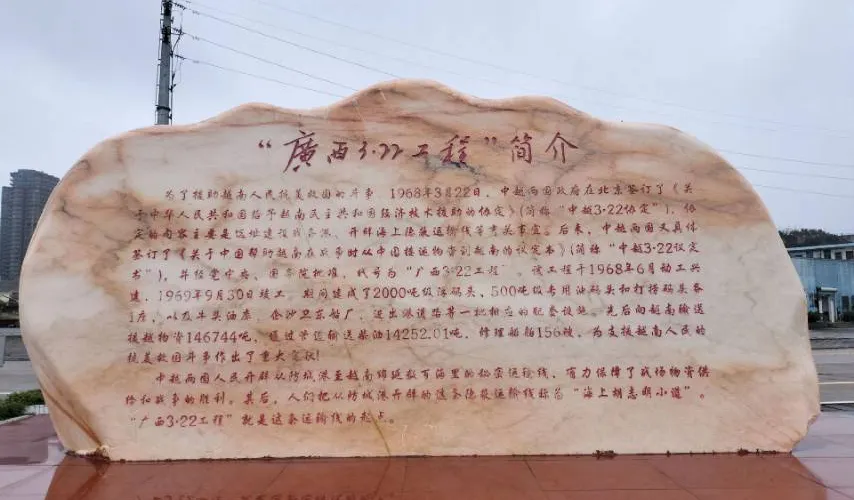 “廣西3·22工程”简介
为了援助越南人民抗美救国的斗争，1968年3月22日，中越两国政府在北京签订了《关
于中华人民共和国给予越南民主共和国经济技术援助的协定》(简称“中越3·22协定”)，协
定的内容主要是选址建设战备港、开辟海上隐蔽运输线等有关事宜。后来，中越两国又具体
签订了《关于中国帮助越南在战争时从中国接运物资到越南的议定书》(简称“中越3·22议定
书”)，并经党中央、国务院批准，代号为“广西3·22工程”。该工程于1968年6月动工兴
建，1969年9月30日竣工，期间建成了2000吨级浮码头、500吨级专用油码头和打捞码头各
1座，以及牛头油库、企沙卫东船厂、进出港道路等一批相应的配套设施。先后向越南输送
援越物资146744吨，通过管道输送柴油14252.01吨，修理船舶156艘，为支援越南人民的
抗美救国斗争作出了重大贡献！
中越两国人民开辟从防城港至越南绵延数百海里的秘密运输线，有力保障了战场物资供
给和战争的胜利。其后，人们把从防城港开辟的这条隐蔽运输线称为“海上胡志明小道”。
“广西3·22工程”就是这条运输线的起点。